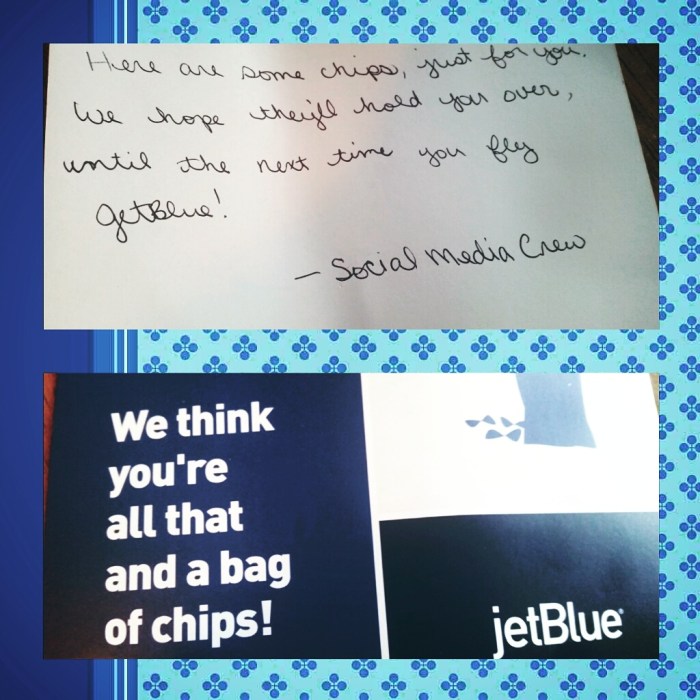 Here are some chips, just for you.
We hope they'll hold you over,
until the next time you fly
JetBlue!
— Social Media Crew
We think
you're
all that
and a bag
of chips!
jetBlue